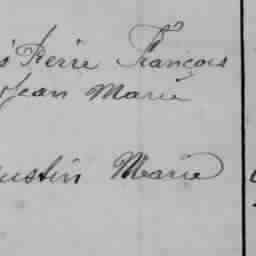 Pierre François
Jean Marie
ustin Marie